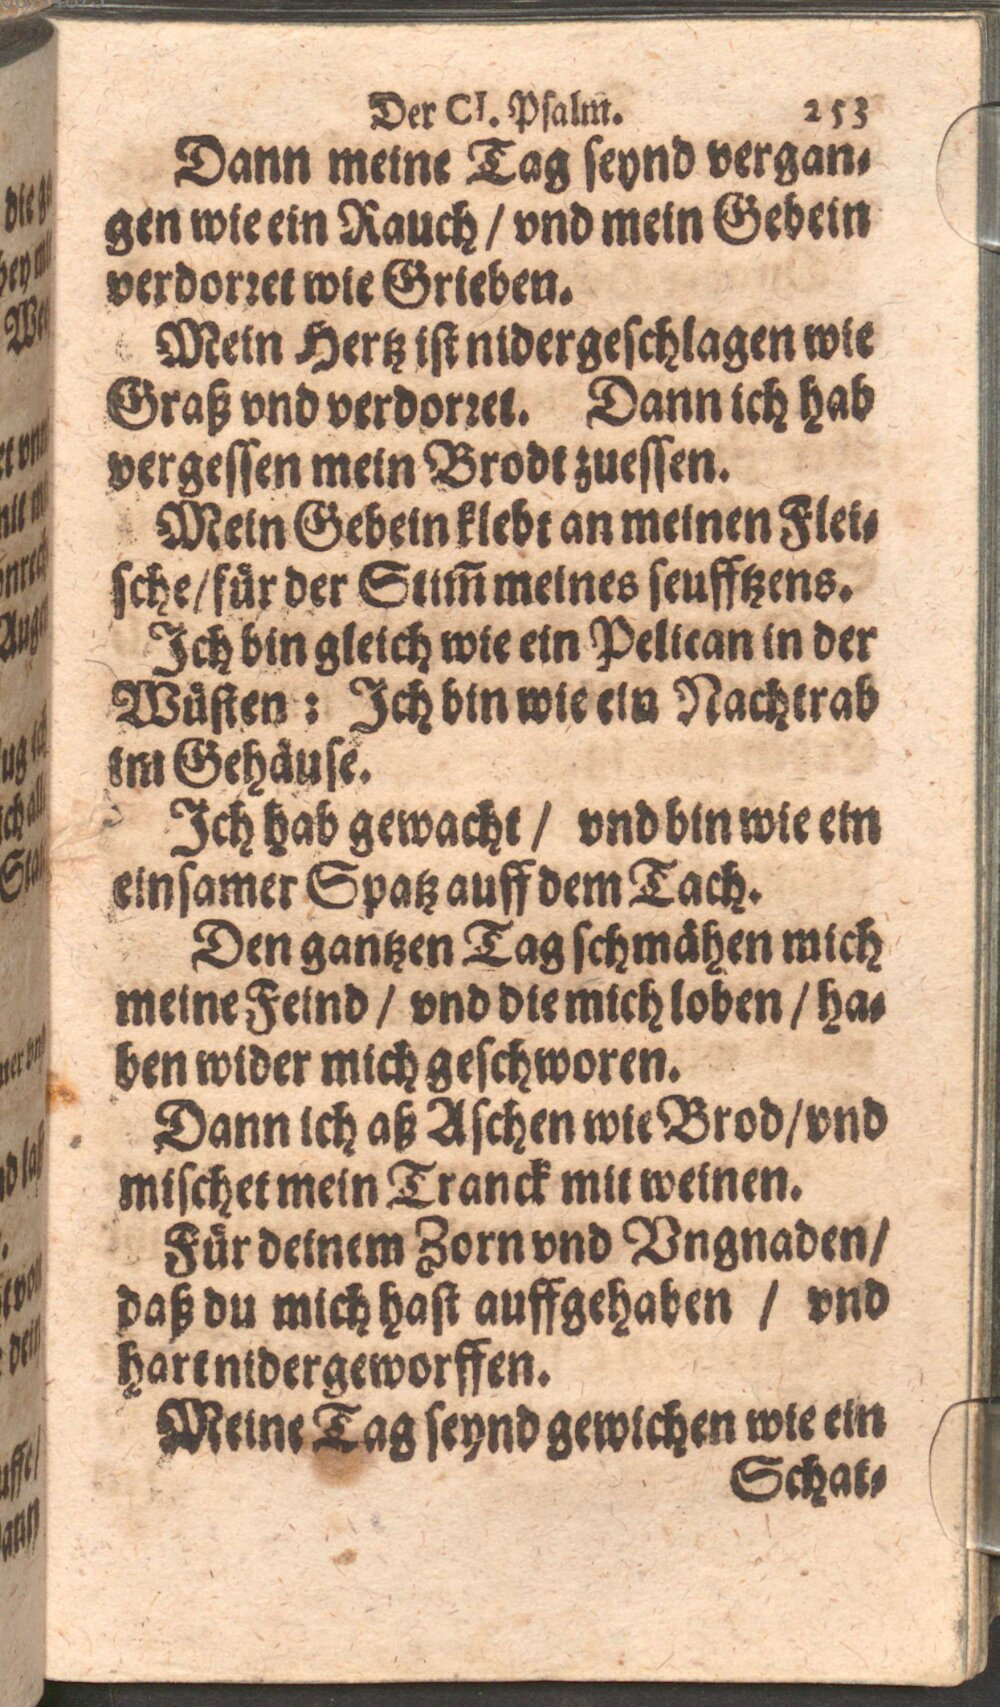 Der CI. Psalm. 253
Dann meine Tag seynd vergan-
gen wie ein Rauch / vnd mein Gebein
verdorret wie Grieben.
Mein Hertz ist nidergeschlagen wie
Graß vnd verdorret. Dann ich hab
vergessen mein Brodt zuessen.
Mein Gebein klebt an meinen Flei-
sche / für der Stim̃ meines seufftzens.
Ich bin gleich wie ein Pelican in der
Wüsten : Ich bin wie ein Nachtrab
im Gehäuse.
Ich hab gewacht / vnd bin wie ein
einsamer Spatz auff dem Tach.
Den gantzen Tag schmähen mich
meine Feind / vnd die mich loben / ha-
ben wider mich geschworen.
Dann ich aß Aschen wie Brod / vnd
mischet mein Tranck mit weinen.
Für deinem Zorn vnd Vngnaden /
daß du mich hast auffgehaben / vnd
hart nidergeworffen.
Meine Tag seynd gewichen wie ein
Schat-